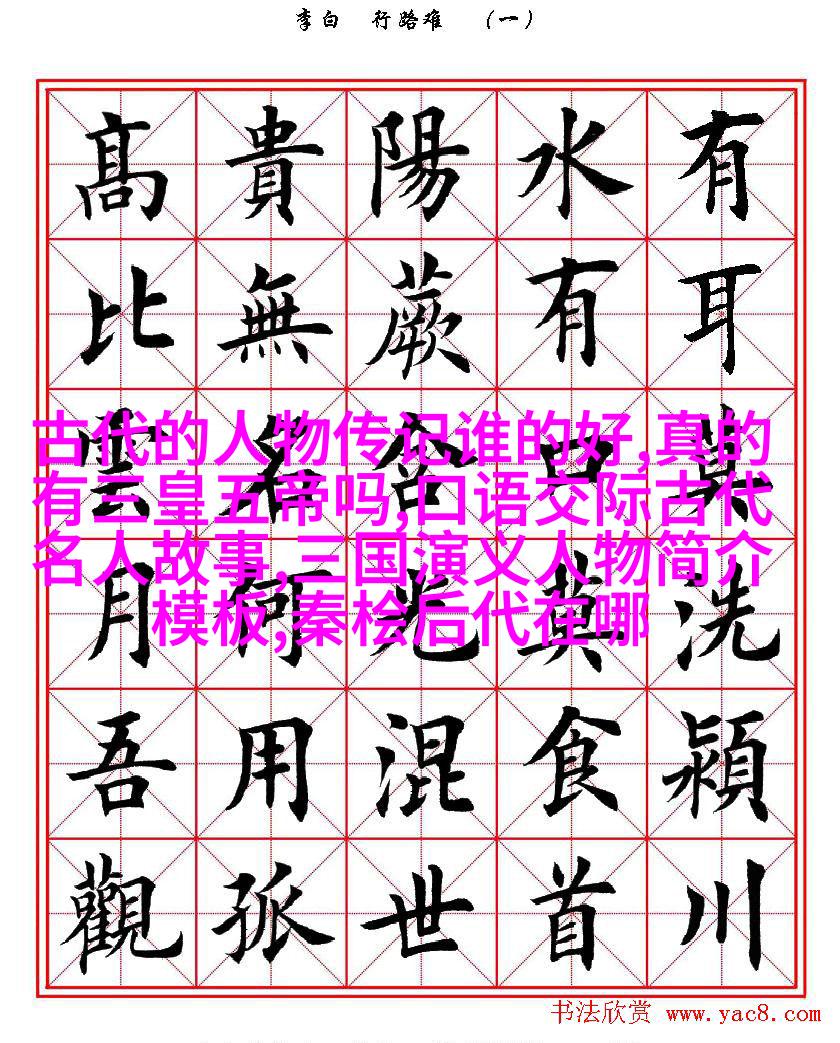 李白 行路难 (一)
有耳莫洗潁川
水有口莫食首
陽蕨含光混世
貴無名何用孤
髙比雲月吾觀
古代的人物传记谁的好,真的
有三皇五帝吗,口语交际古代
名人故事,三国演义人物简介
模板,秦桧后代在哪
书法欣赏 www.yac8.com